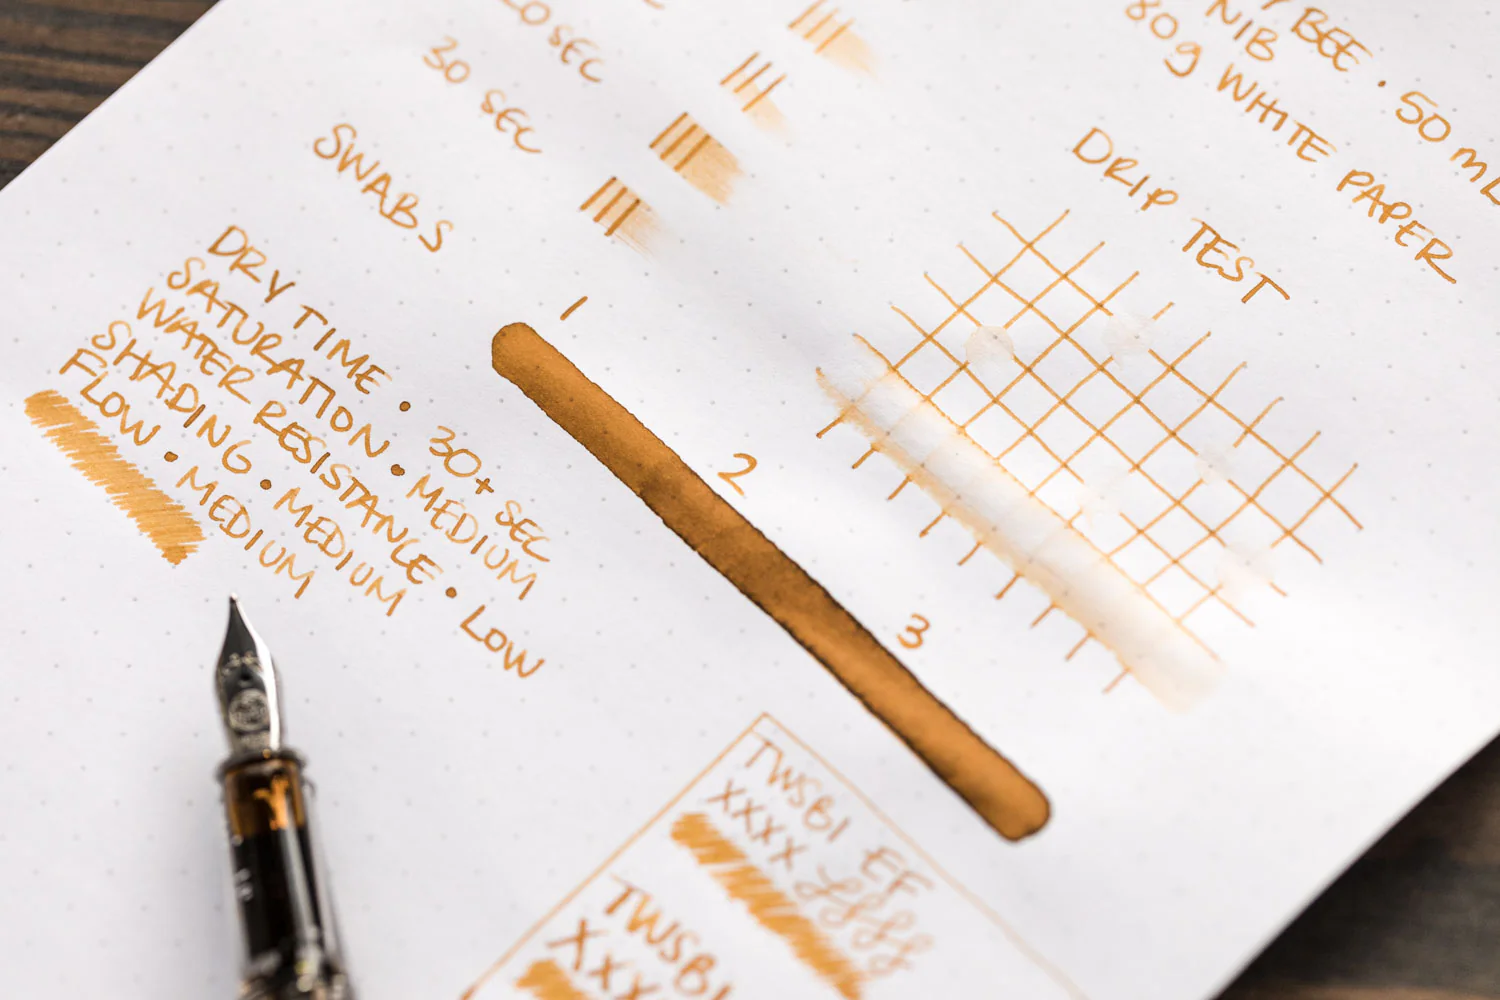 Y BEE · 50 mL
NIB
80g WHITE PAPER
20 SEC
30 SEC
SWABS
1
2
3
DRIP TEST
DRY TIME · 30+ SEC
SATURATION · MEDIUM
WATER RESISTANCE · LOW
SHADING · MEDIUM
FLOW · MEDIUM
TWSBI EF
XXXX
TWSBI
XXX